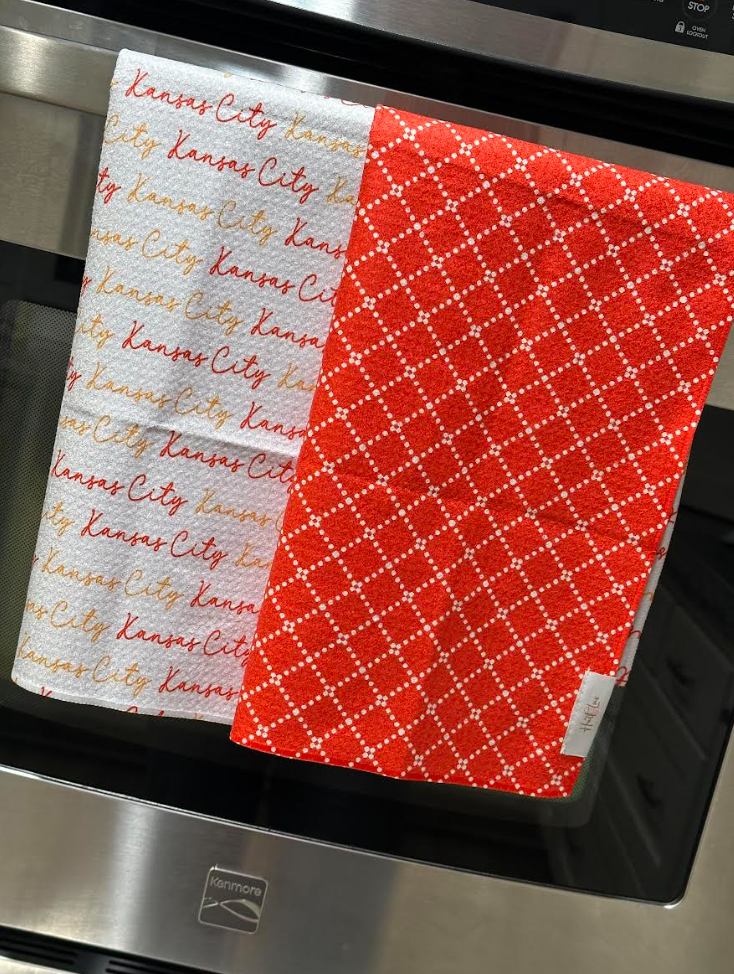 STOP
OVEN
LOCKOUT
Kansas City Kansas
City Kansas City Ka
ty Kansas City Kans
nsas City Kansas Cit
Kansas City Kansa
ity Kansas City Kan
y Kansas City Kansa
sas City Kansas Cit
Kansas City Kansas C
ty Kansas City Kan
Kansas City Kansa
as City Kansas City
Kansas City Kansas
Kenmore